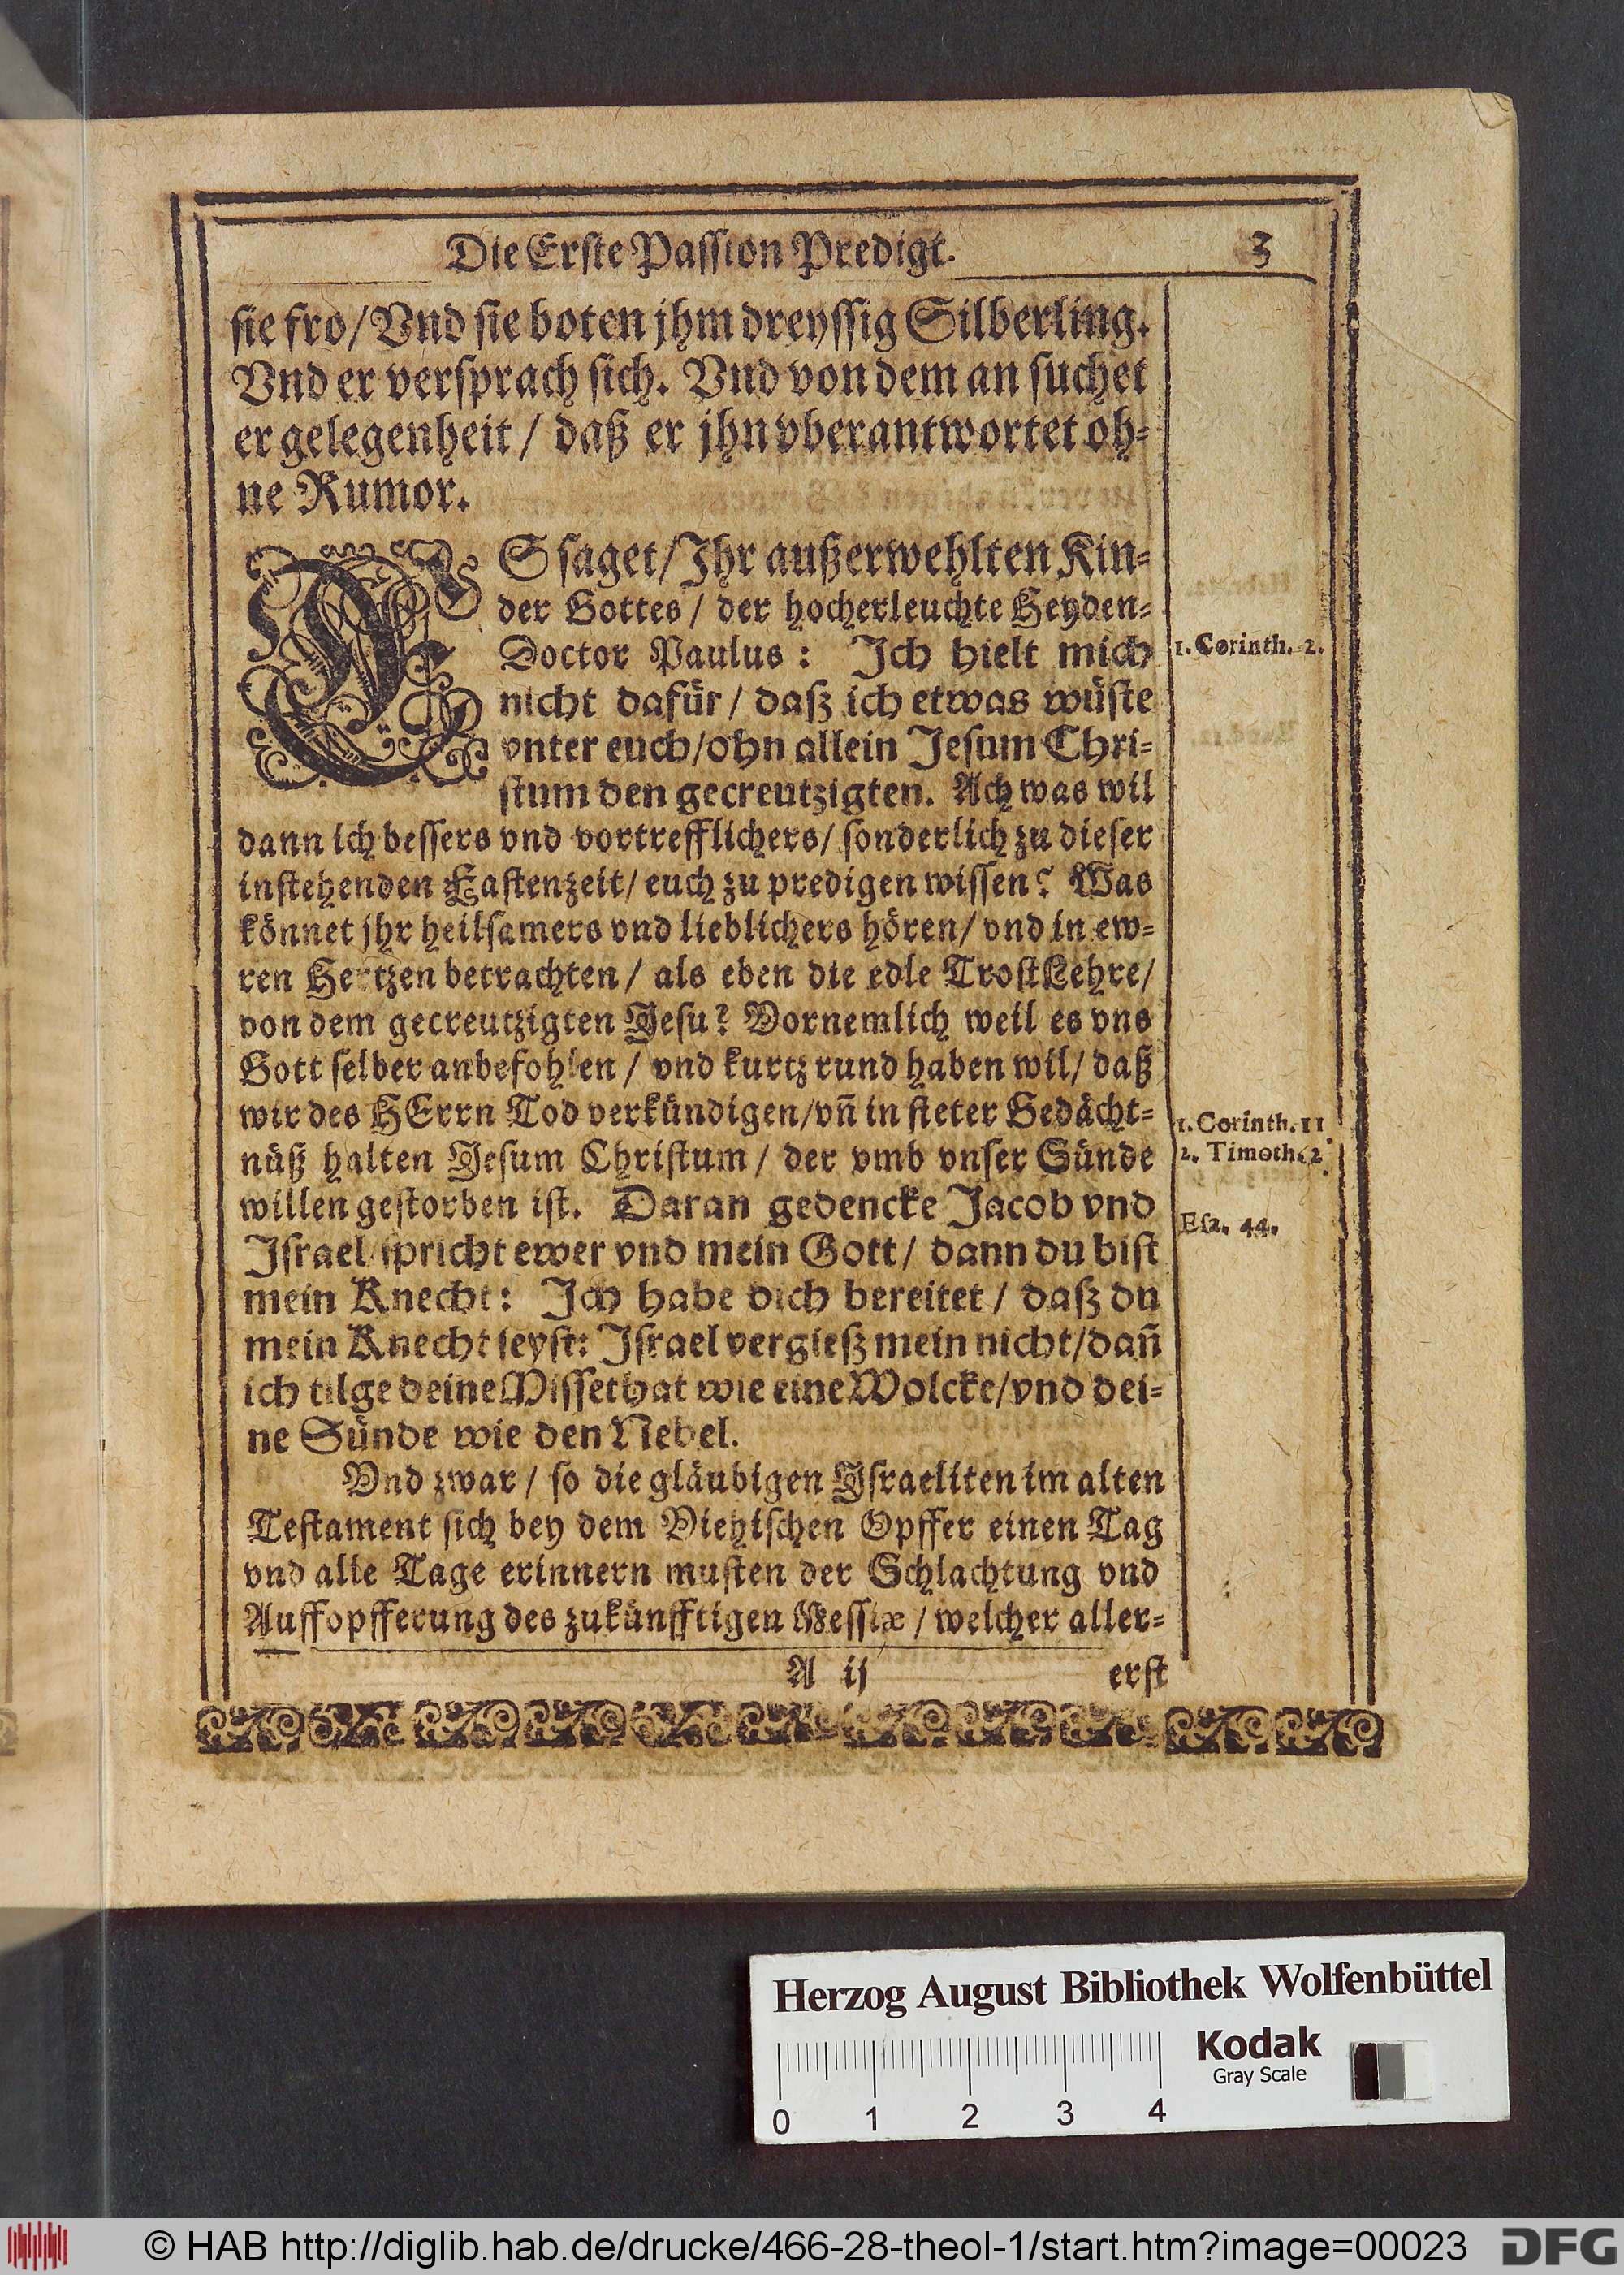 Die Erste Passion Predigt. 3
sie fro/ Vnd sie boten jhm dreyssig Silberling.
Vnd er versprach sich. Vnd von dem an suchet
er gelegenheit/ daß er jhn vberantwortet oh-
ne Rumor.
ES saget/ Jhr außerwehlten Kin-
der Gottes/ der hocherleuchte Heyden-
Doctor Paulus: Jch hielt mich
1. Corinth. 2.
nicht dafür/ daß ich etwas wüste
vnter euch/ ohn allein Jesum Chri-
stum den gecreutzigten. Ach was wil
dann ich bessers vnd vortrefflichers/ sonderlich zu dieser
instehenden Fastenzeit/ euch zu predigen wissen? Was
könnet jhr heilsamers vnd lieblichers hören/ vnd in ew-
ren Hertzen betrachten/ als eben die edle TrostLehre/
von dem gecreutzigten Jesu? Vornemlich weil es vns
Gott selber anbefohlen/ vnd kurtz rund haben wil/ daß
wir des HErrn Tod verkündigen/ vñ in steter Gedächt-
1. Corinth. 11
nüß halten Jesum Christum/ der vmb vnser Sünde
2. Timoth. 2.
willen gestorben ist. Daran gedencke Jacob vnd
Esa. 44.
Jsrael/ spricht ewer vnd mein Gott/ dann du bist
mein Knecht: Jch habe dich bereitet/ daß du
mein Knecht seyst: Jsrael vergieß mein nicht/ dañ
ich tilge deine Missethat wie eine Wolcke/ vnd dei-
ne Sünde wie den Nebel.
Vnd zwar/ so die gläubigen Jsraeliten im alten
Testament sich bey dem Viehischen Opffer einen Tag
vnd alle Tage erinnern musten der Schlachtung vnd
Auffopfferung des zukünfftigen Messiæ/ welcher aller-
A ij erst
Herzog August Bibliothek Wolfenbüttel
Kodak
Gray Scale
0 1 2 3 4
© HAB http://diglib.hab.de/drucke/466-28-theol-1/start.htm?image=00023
DFG